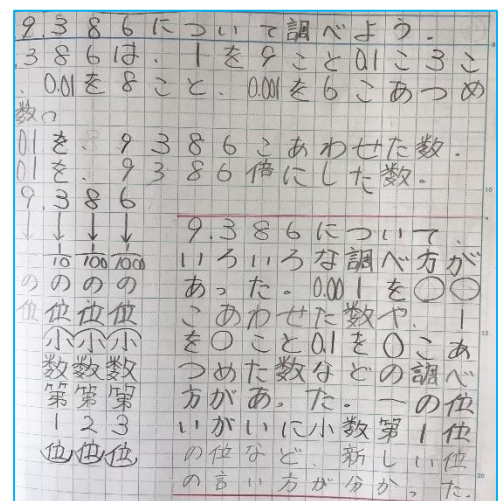 9.386について調べよう.
.386は、1を9こと0.1こ3こ
、0.01を8こと、0.001を6こあつめ
数。
01を、9386こあわせた数.
01を、9386倍にした数。
9.386
↓↓↓↓
10 100 1000
のののの
位位位位
(小 小 小
数数数
第第第
1 2 3
位)位)位)
9.386について、
いろいろな調べ方が
あった。0.001を○○
こあわせた数や、1
を○こと0.1を○こあ
つめた数などの調べ
方があった。一の位
いがいに小数第1位
の位など、新しい位
の言い方が分かった。